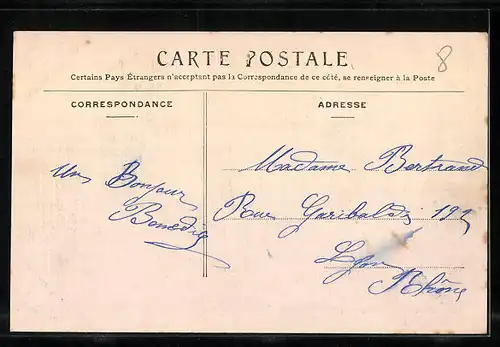 CARTE POSTALE
8
Certains Pays Étrangers n'acceptant pas la Correspondance de ce côté, se renseigner à la Poste
CORRESPONDANCE
ADRESSE
Un Bonjour
Madame Bertrand
Rue Garibaldi
Lyon
Rhône